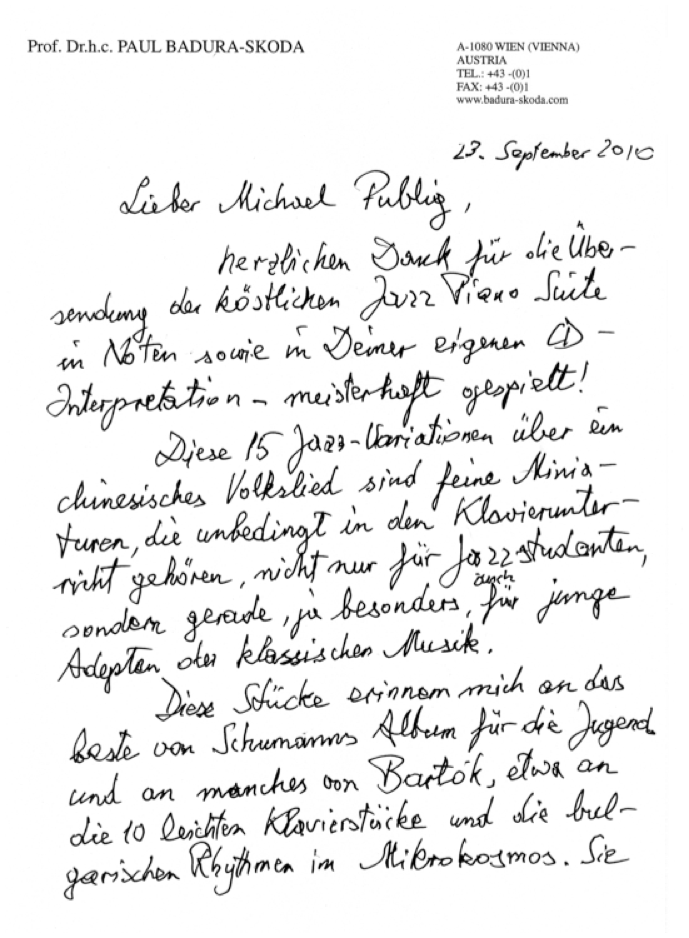 Prof. Dr.h.c. PAUL BADURA-SKODA
A-1080 WIEN (VIENNA)
AUSTRIA
TEL.: +43 -(0)1
FAX: +43 -(0)1
www.badura-skoda.com
23. September 2010
Lieber Michael Publig,
herzlichen Dank für die Über-
sendung der köstlichen Jazz Piano Suite
in Noten sowie in Deiner eigenen CD-
Interpretation - meisterhaft gespielt!
Diese 15 Jazz-Variationen über ein
chinesisches Volkslied sind feine Minia-
turen, die unbedingt in den Klavierunter-
richt gehören, nicht nur für Jazzstudenten,
sondern gerade, ja besonders, auch für junge
Adepten der klassischen Musik.
Diese Stücke erinnern mich an das
beste von Schumanns Album für die Jugend
und an manches von Bartók, etwa an
die 10 leichten Klavierstücke und die bul-
garischen Rhythmen im Mikrokosmos. Sie